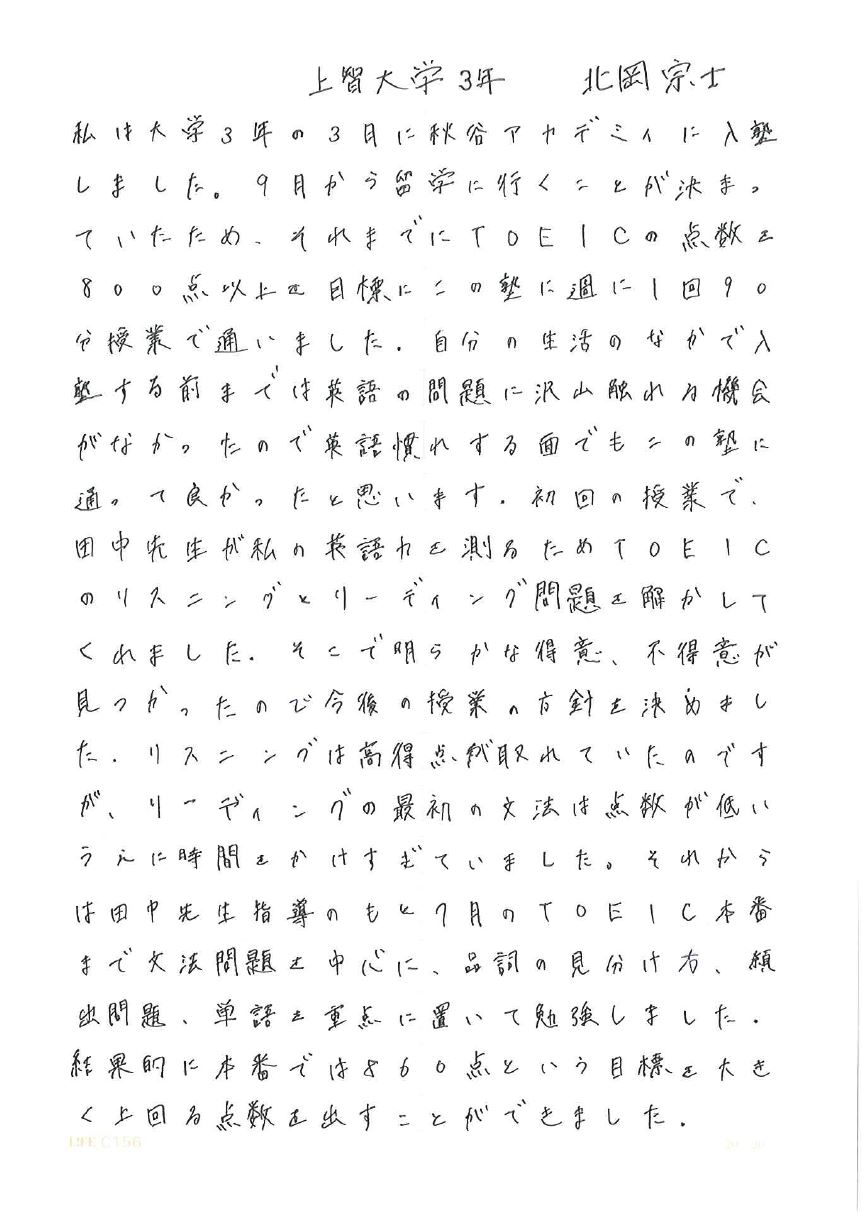 上智大学3年 北岡宗士
私は大学3年の3月に秋谷アカデミィに入塾
しました。9月から留学に行くことが決まっ
ていたため、それまでにTOEICの点数を
800点以上を目標にこの塾に週に1回90
分授業で通いました.自分の生活のなかで入
塾する前までは英語の問題に沢山触れる機会
がなかったので英語慣れする面でもこの塾に
通って良かったと思います.初回の授業で、
田中先生が私の英語力を測るためTOEIC
のリスニングとリーディング問題を解かして
くれました.そこで明らかな得意、不得意が
見つかったので今後の授業の方針を決めまし
た.リスニングは高得点が取れていたのです
が、リーディングの最初の文法は点数が低い
うえに時間をかけすぎていました。それから
は田中先生指導のもと7月のTOEIC本番
まで文法問題を中心に、品詞の見分け方、頻
出問題、単語を重点に置いて勉強しました.
結果的に本番では860点という目標を大き
く上回る点数を出すことができました.
LIFE C156
20×20